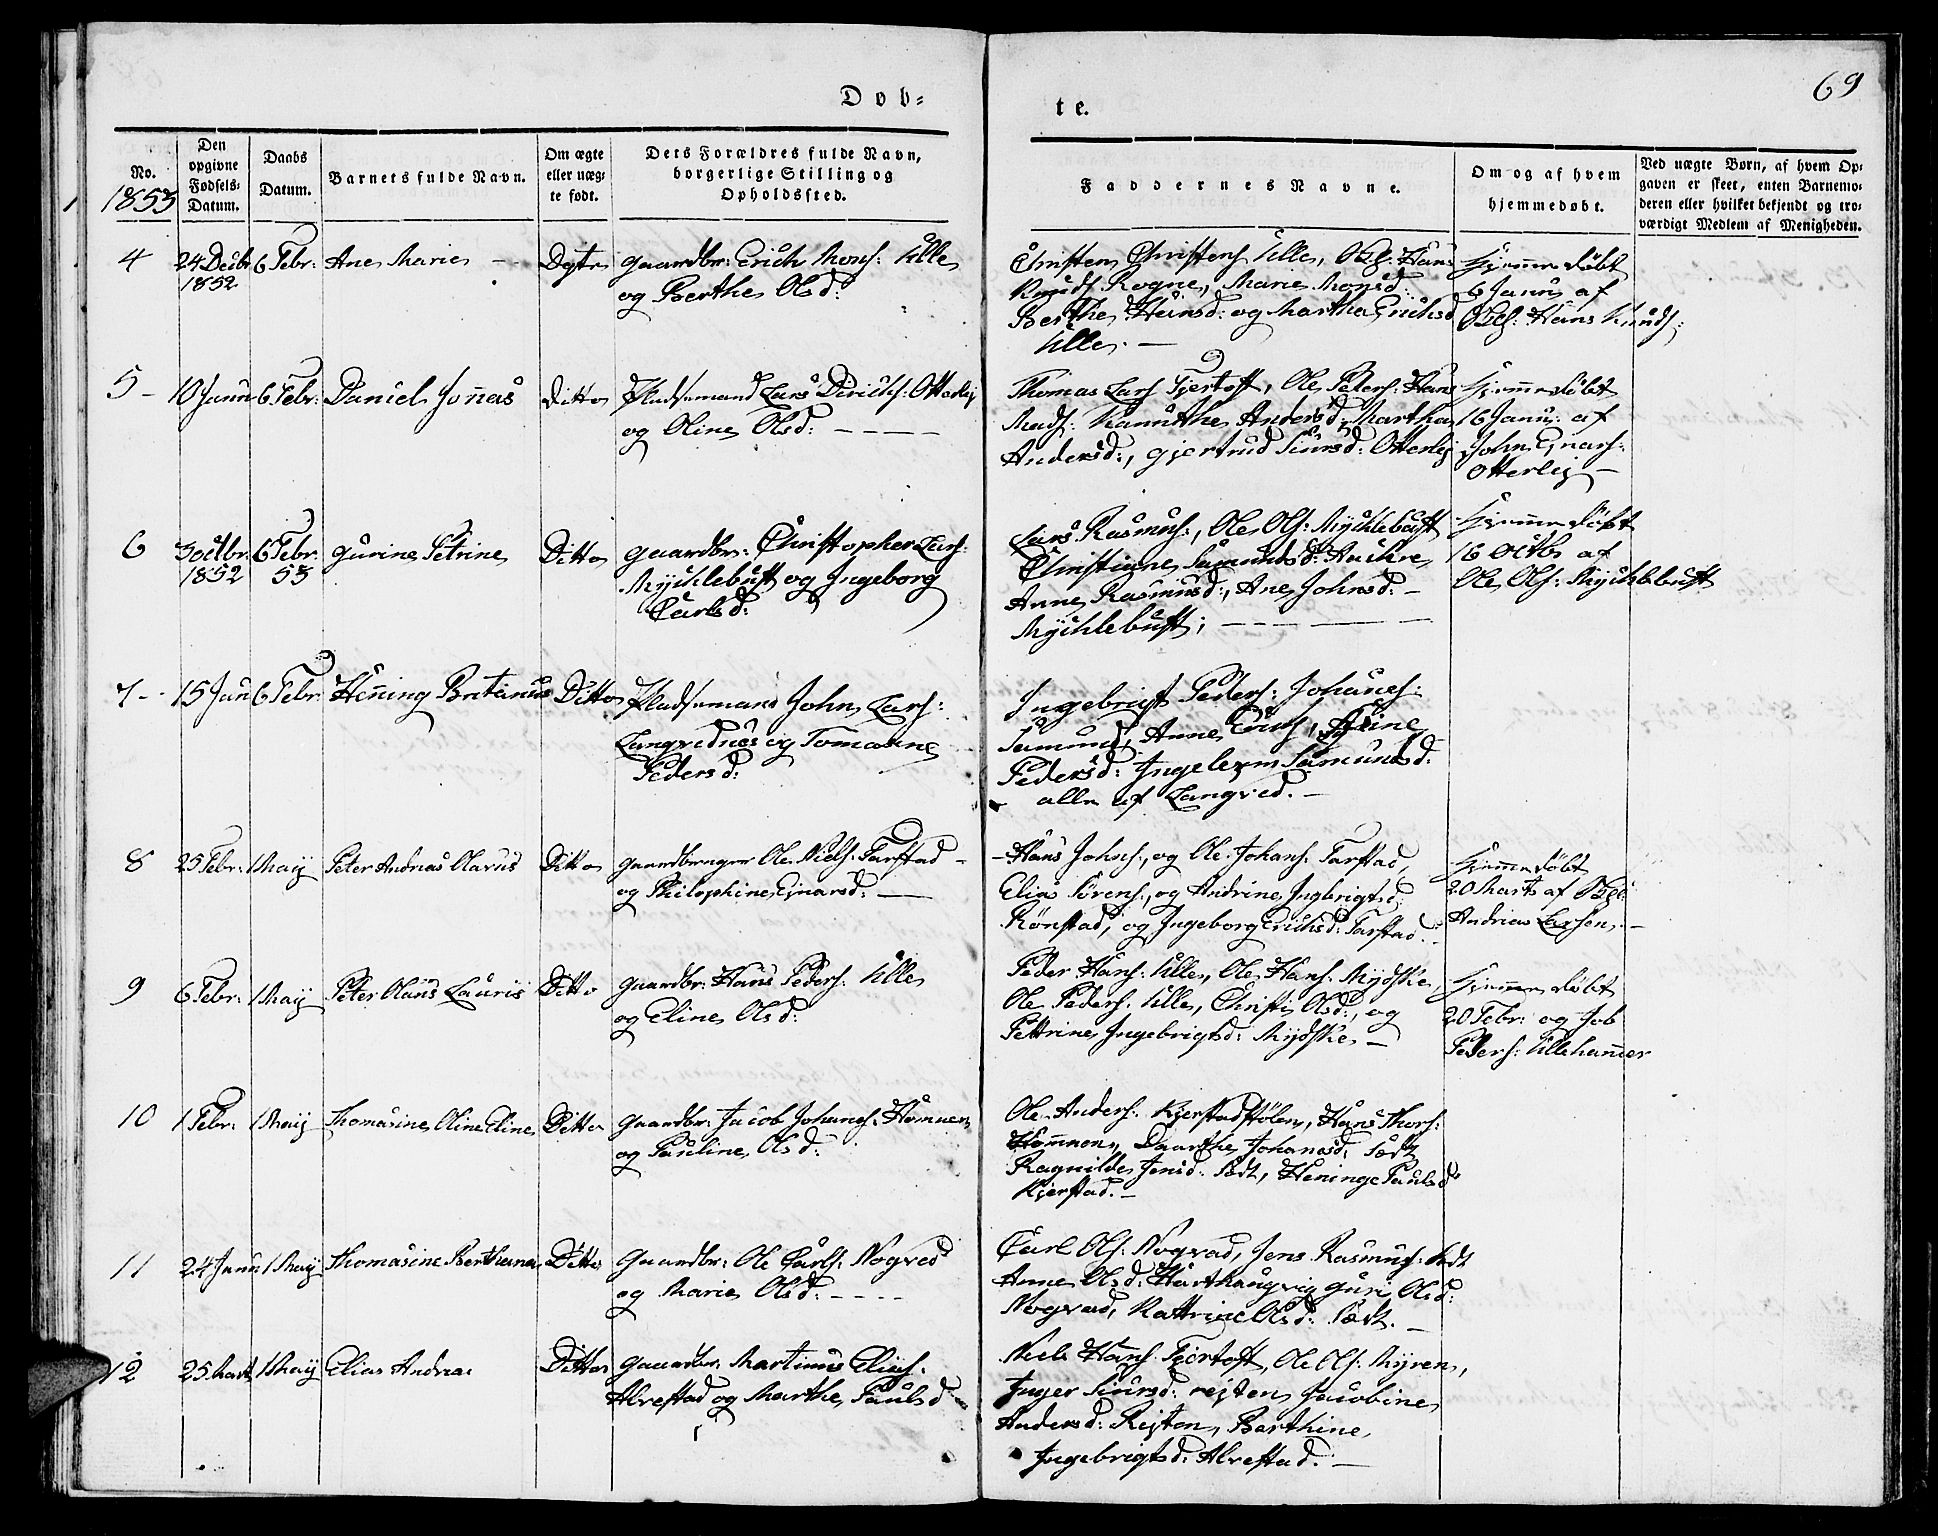 Døb-
te.
69
No.
1853
Den
opgivne
Fødsels-
Datum.
Daabs
Datum.
Barnets fulde Navn.
Om ægte
eller uæg-
te født.
Dets Forældres fulde Navn,
borgerlige Stilling og
Opholdssted.
Faddernes Navne.
Om og af hvem
hjemmedøbt.
Ved uægte Børn, af hvem Op-
gaven er skeet, enten Barnemo-
deren eller hvilket bekjendt og tro-
værdigt Medlem af Menigheden.
4 24 Decbr 6 Febr: Ane Marie - Dgte gaardbr: Erich Mons: Ulle
1852 og Berthe Olsd:
Christen Christens Ulle, Hans
Knuds. Rogne, Marie Monsd:
Berthe Hansd: og Martha Erichsd
Ulle. -
Hjemmedøbt
6 Janu af
Hans Knuds:
5 - 10 Janu 6 Febr: Daniel Jonas Ditto Pladsemand Lars Dirichs: Otterlej
og Oline Olsd:
Thomas Lars Fjertoft, Ole Peders: Hans
Mads: Andersd, Martha
Andersd:, Gjertrud Siursd: Otterlej
Hjemmedøbt
16 Janu: af
John Ejnars:
Otterlej -
6 3 octbr. 6 Febr. Gurine Petrine Ditto gaardbr: Christopher Lars:
1852 53 Mychlebust og Ingeborg
Carlsd:
Lars Rasmus:, Ole Ols: Mychlebust
Christiane Samundsd:
Anne Rasmusd:, Ane Johnsd: -
Mychlebust;
Hjemmedøbt
16 Octb: af
Ole Ols: Mychlebust
7 - 15 Jan 6 Febr. Hening Britanus Ditto Pladsemand John Lars:
Langvednes og Tomasine
Pedersd:
Ingebrigt Peders: Johanes:
Samund, Anne Erichs,
Pedersd: Samundsd:
alle af Langved. -
8 25 Febr: 1 Maij Peter Andreas Olarus Ditto gaardbruger Ole Niels: Tarstad -
og Philophine Ejnarsd: -
Hans Johns:, og Ole Johans: Tarstad,
Elias Sørens:, og Andrine Ingbrigtsd:
Rønstad, og Ingeborg Erichsd: Tarstad. -
Hjemmedøbt
20 Marts af
Andrias Larsen. -
9 6 Febr: 1 Maij Peter Olaus Lauris Ditto gaardbr: Hans Peders: Ulle
og Eline Olsd:
Peder Hans: Ulle, Ole Hans: Mydske,
Ole Peders. Ulle, Christi Olsd:, og
Pettrine Ingebrigtsd: Mydske -
Hjemmedøbt
20 Febr: og Job
Peders: Ullehamer
10 1 Febr: 1 Maij Thomasine Oline Eline Ditto gaardbr: Jacob Johans: Hamnen
og Pauline Olsd:
Ole Anders: Kjerstadstølen, Hans Thors:
Hamnen, Daarthe Johansd: Sædt
Ragnilde Jensd: Sædt, Heninge Paulsd
Kjerstad. -
11 24 Janu 1 Maij Thomasine Berthana Ditto Gaardbr: Ole Carls: Nogved
og Marie Olsd:
Carl Ols: Nogvad, Jens Rasmus: Sædt
Anne Olsd: guri Olsd:
Nogvad, Kattrine Olsd: Sædt. -
12 25 Mart 1 Maij Elias Andreas Ditto gaardbr: Martinus Elias:
Alrestad og Marthe Paulsd -
Niels Hans: Fjertoft, Ole Ols: Myren,
Inger Siursd: rejten, Jacobine
Andersd: Rejten, Berthine
Ingebrigtsd: Alrestad. -